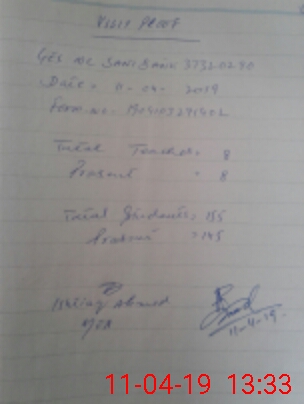 VISIT PROOF
GES MC SANI BANK 37320290
Date = 11-04-2019
Form no:
Total Teachers = 8
Present = 8
Total Students = 155
Present = 145
Ishtiaq Ahmed
11-4-19
11-04-19 13:33